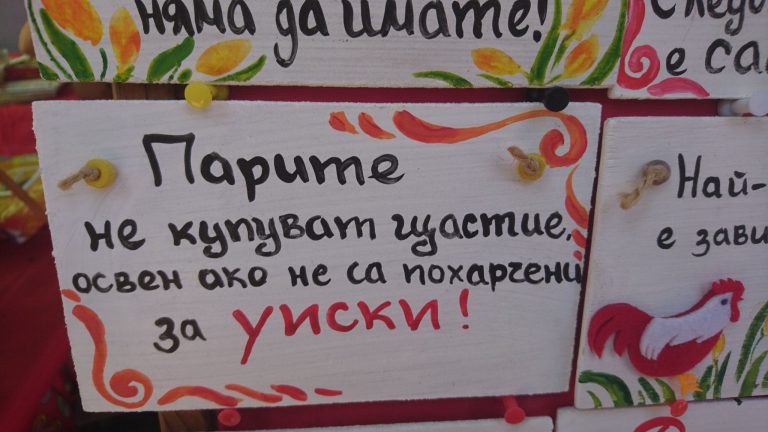 няма да имате!
Парите
не купуват щастие,
освен ако не са похарчени
за уиски!
е
Най-
е